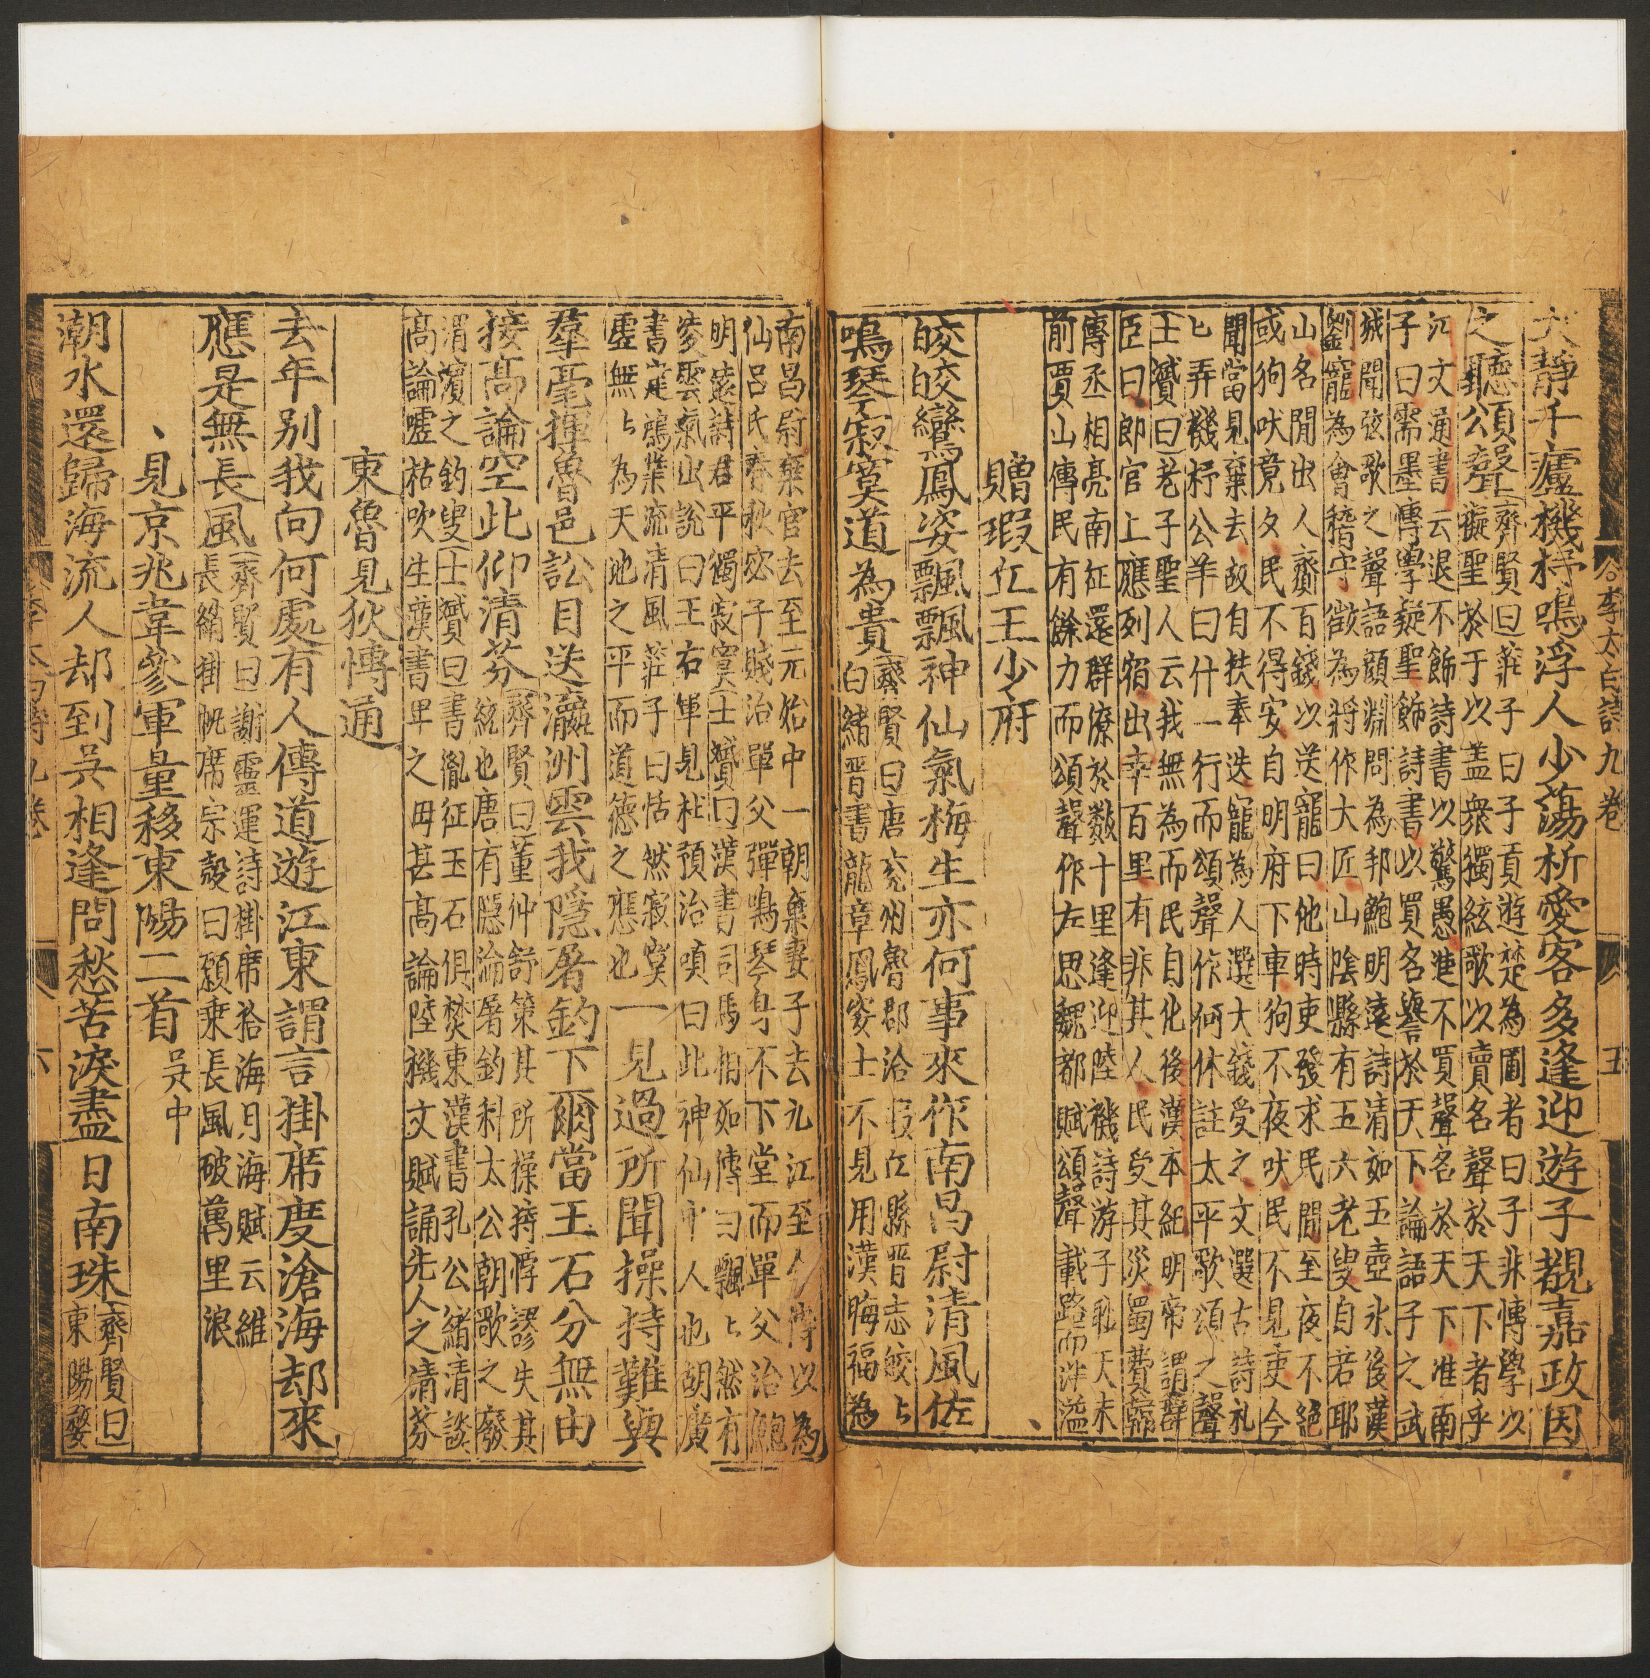 犬靜千廬機杼鳴浮人少蕩析愛客多逢迎遊子覩嘉政因
之聽頌聲(齊賢曰莊子曰子貢遊楚為圃者曰子非博學以
擬聖於于以盖衆獨絃歌以賣名聲於天下者乎
江文通書云退不飾詩書以驚愚進不買聲名於天下淮南
子曰儒墨博學疑聖飾詩書以買名譽於天下論語子之武
城聞弦歌之聲語顔淵問為邦鮑明遠詩清如玉壺氷後漢
劉寵為會稽守徵為將作大匠山陰縣有五六老叟自若耶
山名閒出人齎百錢以送寵曰他時吏發求民閒至夜不絶
或狗吠竟夕民不得安自明府下車狗不夜吠民不見吏今
聞當見棄去故自扶奉送寵為人選大錢受之文選古詩札
匕弄機杼公羊曰什一行而頌聲作何休註太平歌頌之聲
士贇曰老子聖人云我無為而民自化後漢本紀明帝謂群
臣曰郎官上應列宿出宰百里有非其人民受其災蜀費禕
傳丞相亮南征還群僚於數十里逢迎陸機詩游子眇天末
前賈山傳民有餘力而頌聲作左思魏都賦頌聲載路而洋溢
贈瑕丘王少府
皎皎鸞鳳姿飄飄神仙氣梅生亦何事來作南昌尉清風佐
鳴琴寂寞道為貴(齊賢曰唐兖州魯郡治瑕丘縣晋志皎匕
白緒晋書龍章鳳姿士不見用漢梅福為
南昌尉棄官去至元始中一朝棄妻子去九江至今傳以為
仙呂氏春秋宓子賤治單父彈鳴琴身不下堂而單父治鮑
明遠詩君平獨寂寞士贇曰漢書司馬相如傳曰飄匕然有
凌雲氣山說曰王右軍見杜預治嘆曰此神仙中人也胡廣
書定鴻業流清風莊子曰恬然寂寞
虛無匕為天地之平而道德之應也一見過所聞操持難與
羣毫揮魯邑訟目送瀛洲雲我隱屠釣下爾當玉石分無由
接高論空此仰清芬(齊賢曰董仲舒策其所操持悖謬失其
統也唐有隱淪屠釣科太公朝歌之廢
渭濱之釣叟(士贇曰書胤征玉石俱焚東漢書孔公緒清談
高論噓枯吹生漢書卑之毋甚高論陸機文賦誦先人之清芬
東魯見狄博通
去年别我向何處有人傳道遊江東謂言掛席度滄海却來
應是無長風(齊賢曰謝靈運詩掛席拾海月海賦云維
長綃掛帆席宗愨曰願乗長風破萬里浪
見京兆韋參軍量移東陽二首吳中
潮水還歸海流人却到吳相逢問愁苦淚盡日南珠(齊賢曰
東陽婺
合李太白詩九卷 五
合李太白詩九卷 六